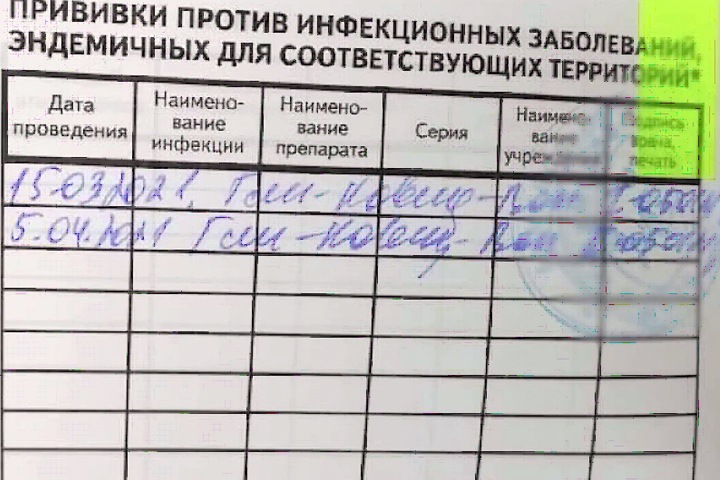 ПРИВИВКИ ПРОТИВ ИНФЕКЦИОННЫХ ЗАБОЛЕВАНИЙ,
ЭНДЕМИЧНЫХ ДЛЯ СООТВЕТСТВУЮЩИХ ТЕРРИТОРИЙ*
Дата проведения
Наимено-
вание
инфекции
Наимено-
вание
препарата
Серия
Наимено-
вание
учреждения
Подпись
врача,
печать
15.03.2021. Гам-Ковид-Вак
5.04.2021 Гам-Ковид-Вак